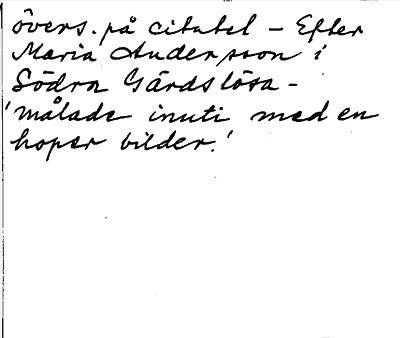 övers. på citatet – Efter
Maria Andersson i
Södra Gärdslösa –
'målade inuti med en
hoper bilder.'